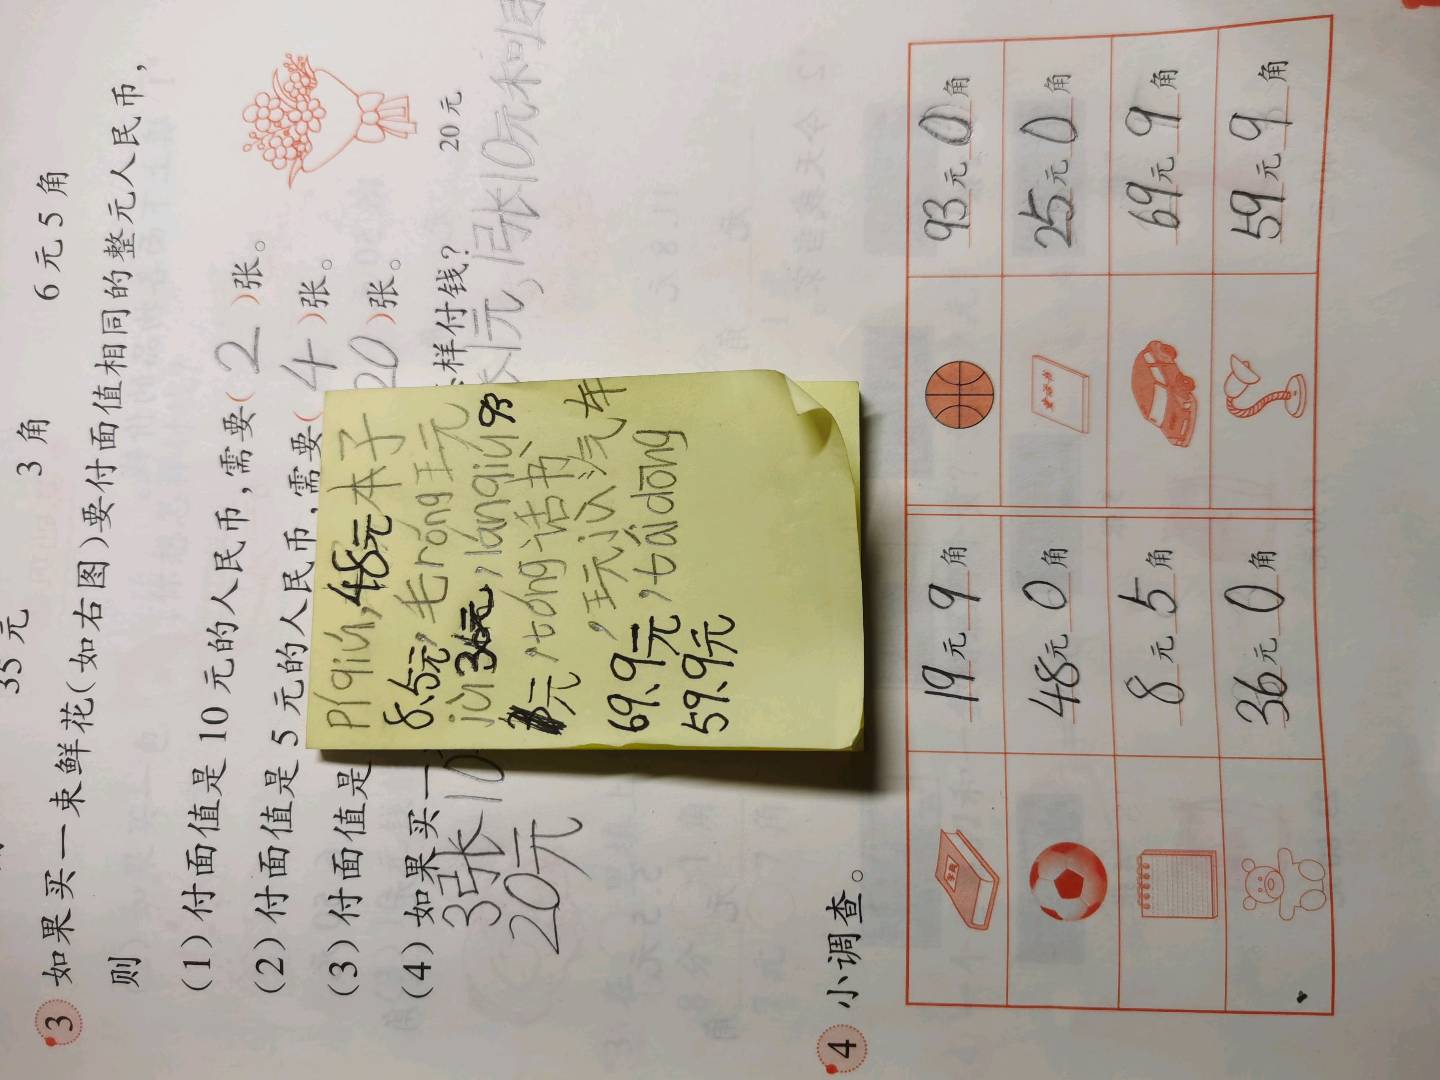 35元 3角 6元5角
3 如果买一束鲜花(如右图)要付面值相同的整元人民币,
则
(1)付面值是10元的人民币,需要(2)张。
(2)付面值是5元的人民币,需要(4)张。
(3)付面值是 20)张。
(4)如果买一 样付钱? 20元
3张10 张1元,1张10元和1张
20元
píqiú,48元本子
8.5元,毛róng玩元
jù36元,lánqiú93
元,tóng话书
,玩jù汽车
69.9元,táidēng
59.9元
4 小调查。
字典 19元9角 93元0角
48元0角 童话书 25元0角
8元5角 69元9角
36元0角 59元9角